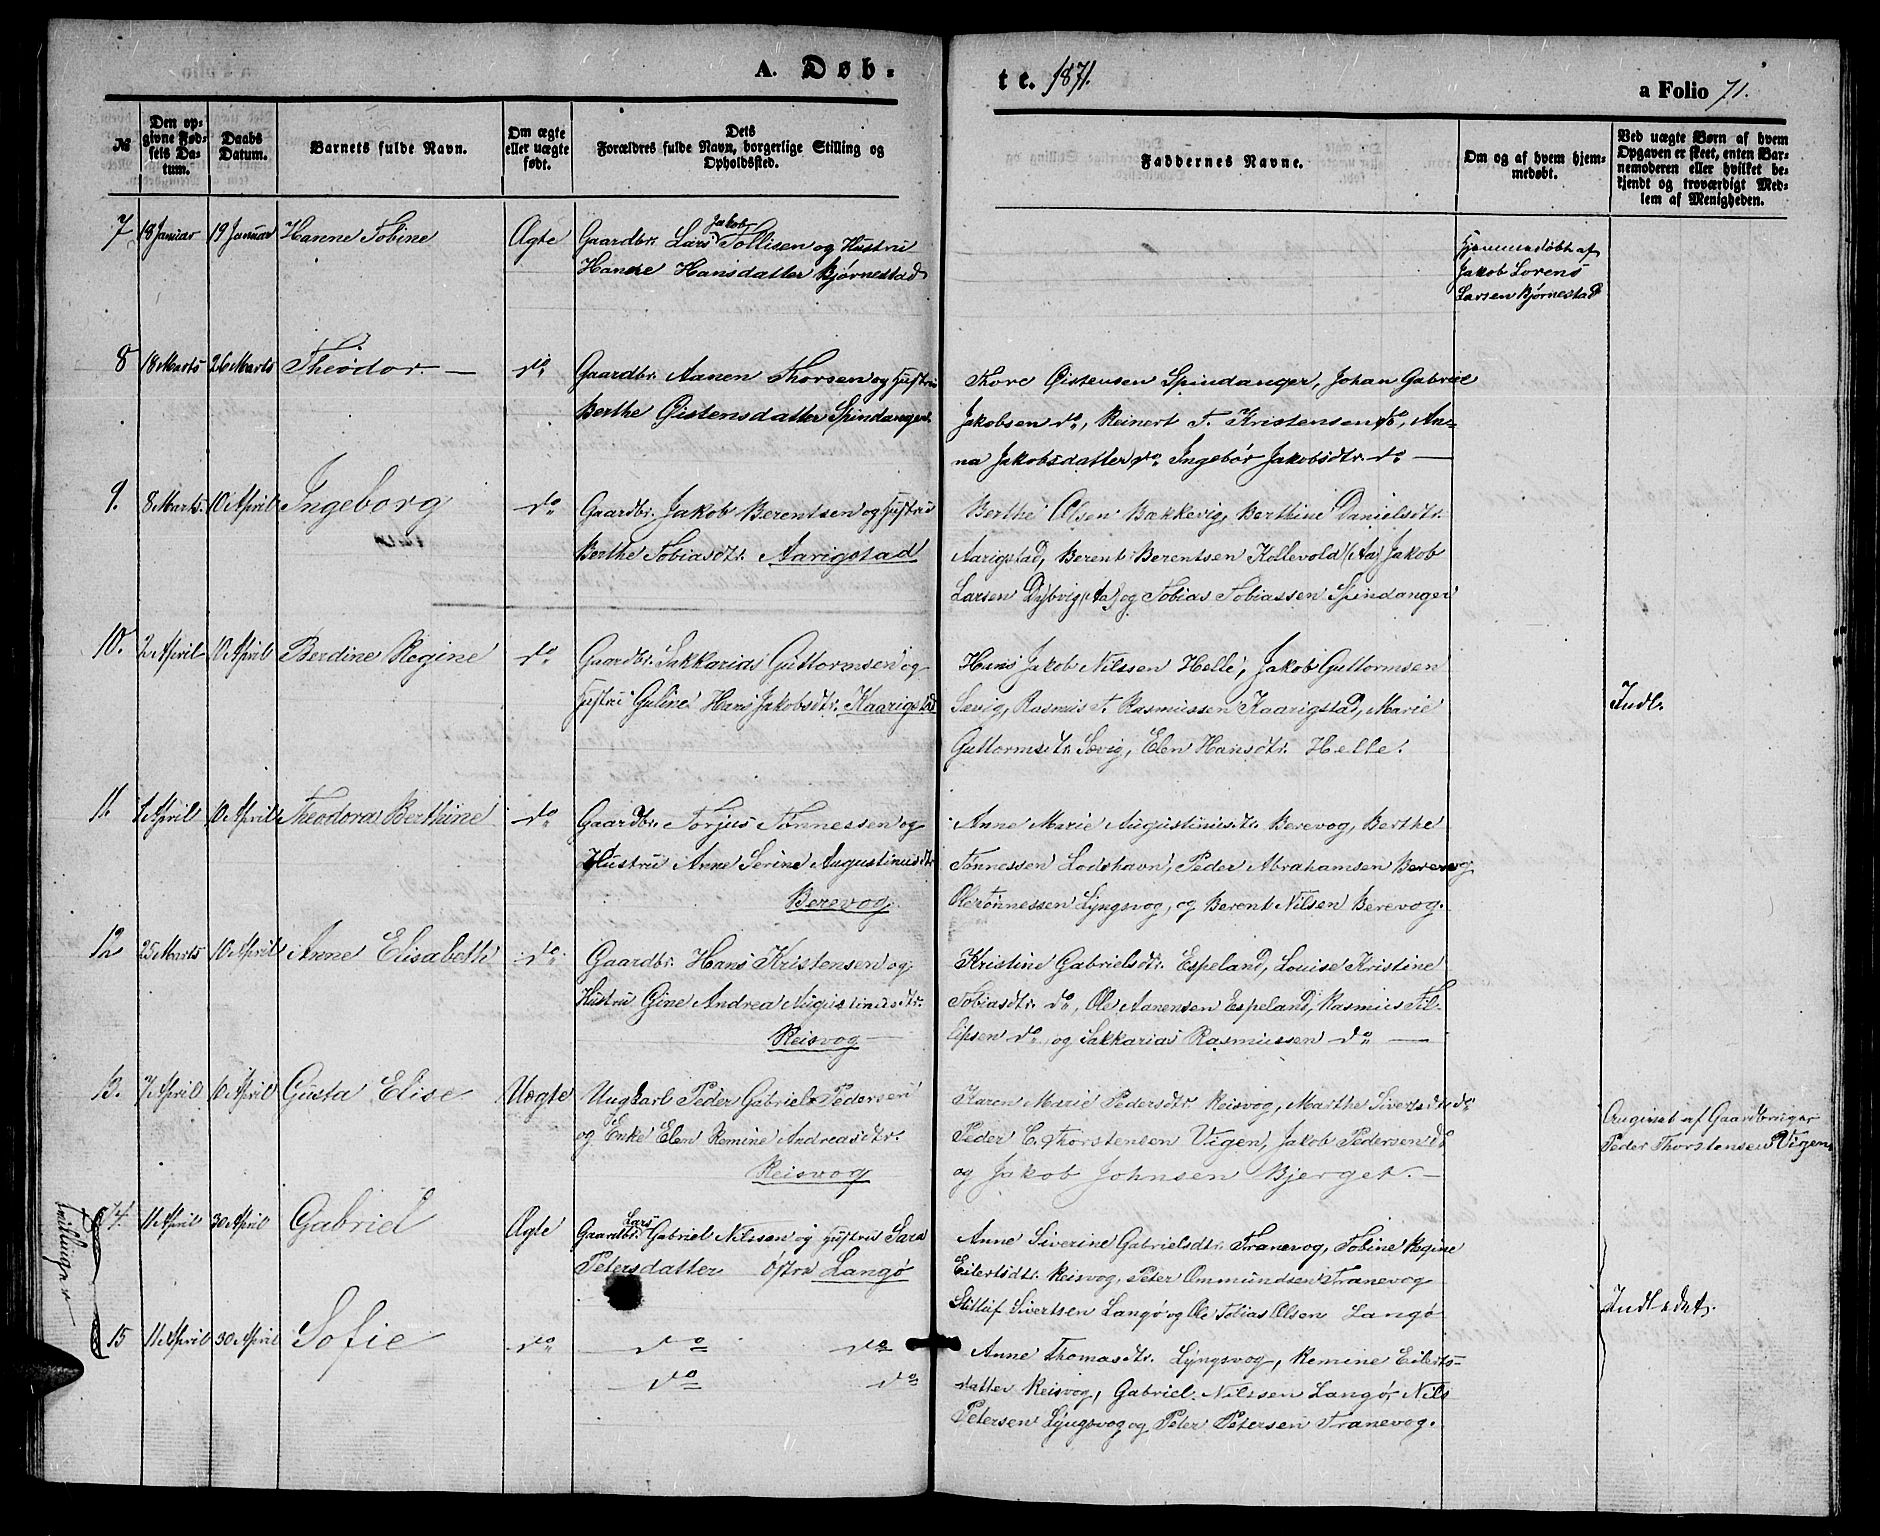 A. Døb-
te. 1871.
a Folio 71.
№
Den op-
givne Fød-
sels Da-
tum.
Daabs
Datum.
Barnets fulde Navn.
Om ægte
eller uægte
født.
Dets
Forældres fulde Navn, borgerlige Stilling og
Opholdssted.
Faddernes Navne.
Om og af hvem hjem-
medøbt.
Ved uægte Børn af hvem
Opgaven er skeet, enten Bar-
nemoderen eller hvilket be-
kjendt og troværdigt Med-
lem af Menigheden.
7 18 Januar 19 Januar Hanne Tobine Ægte Gaardbr. Lars Jakob Tollisen og Hustru
Hanne Hansdatter Bjørnestad
Hjemmedøbt af
Jakob Lorens
Larsen Bjørnestad
8 18 Marts 26 Marts Theodor. — do Gaardbr. Aanen Thorsen og Hustru
Berthe Øistensdatter Spindanger.
Thore Øistensen Spindanger, Johan Gabriel
Jakobsen do, Reinert T. Kristensen do, An-
na Jakobsdatter do Ingebor Jakobsdtr. do —
9. 8 Marts. 10 April Ingeborg do Gaardbr. Jakob Berentsen og Hustru
Berthe Tobiasdtr. Aarigstad
Berthe Olsen Bækkevig, Berthine Danielsdtr.
Aarigstad, Berent Berentsen Kollevold (Aa) Jakob
Larsen Dybvig (Aa) og Tobias Tobiassen Spindanger
10. 2 April 10 April Berdine Regine do Gaardbr. Sakkarias Guttormsen og
Hustru Guline Hans Jakobsdtr. Kaarigstad
Hans Jakob Nilssen Helle, Jakob Guttormsen
Sævig, Rasmus T. Rasmussen Kaarigstad, Marie
Guttormsdtr. Sævig, Elen Hansdtr. Helle.
Indl.
11. 1 April 10 April Theodora Berthine do Gaardbr. Torjus Tønnessen og
Hustru Anne Serine Augustinusdtr.
Berevog.
Anne Marie Augustinusdtr. Berevog, Berthe
Tønnessen Lodshavn, Peder Abrahamsen Berevog
Ole Tønnessen Lyngsvog, og Berent Nilsen Berevog.
12 25 Marts 10 April Anne Elisabeth do Gaardbr. Hans Kristensen og
Hustru Gine Andrea Augustinusdtr.
Reisvog —
Kristine Gabrielsdtr. Espeland, Louise Kristine
Tobiasdtr. do, Ole Aanensen Espeland, Rasmus Fil-
lipsen do og Sakkarias Rasmussen do —
13. 7 April 10 April Gusta Elise Uægte Ungkarl Peder Gabriel Pedersen
og Enke Elen Remine Andreasdtr.
Reisvog
Karen Marie Pedersdtr. Reisvog, Marthe Sivertsdtr. do
Peder C. Thorstensen Vigen, Jakob Pedersen do
og Jakob Johnsen Bjerget. —
Angivet af Gaardbruger
Peder Thorstensen Vigen
Tvillinger
14. 11 April 30 April Gabriel Ægte Gaardbr. Lars Gabriel Nilssen og Hustru Sara
Petersdatter Østre Langø
Anne Siverine Gabrielsdtr. Tranevog, Tobine Regine
Eilertsdtr. Reisvog, Peter Ommundsen Tranevog
Sivertsen Langø og Ole Tobias Olsen Langø
Indl. det.
15 11 April 30 April Sofie do do do
do do
Anne Thomasdtr. Lyngsvog, Remine Eilerts-
datter Reisvog, Gabriel Nilssen Langø, Nils
Petersen Lyngsvog og Peter Petersen Tranevog.